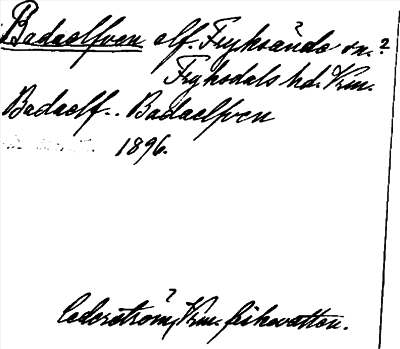 Badaelfven elf. Fryksände sn.?
Fryksdals hd. Vrm.
Badaelf.. Badaelfven
1896.
Cederström, Vrm. fiskevatten.